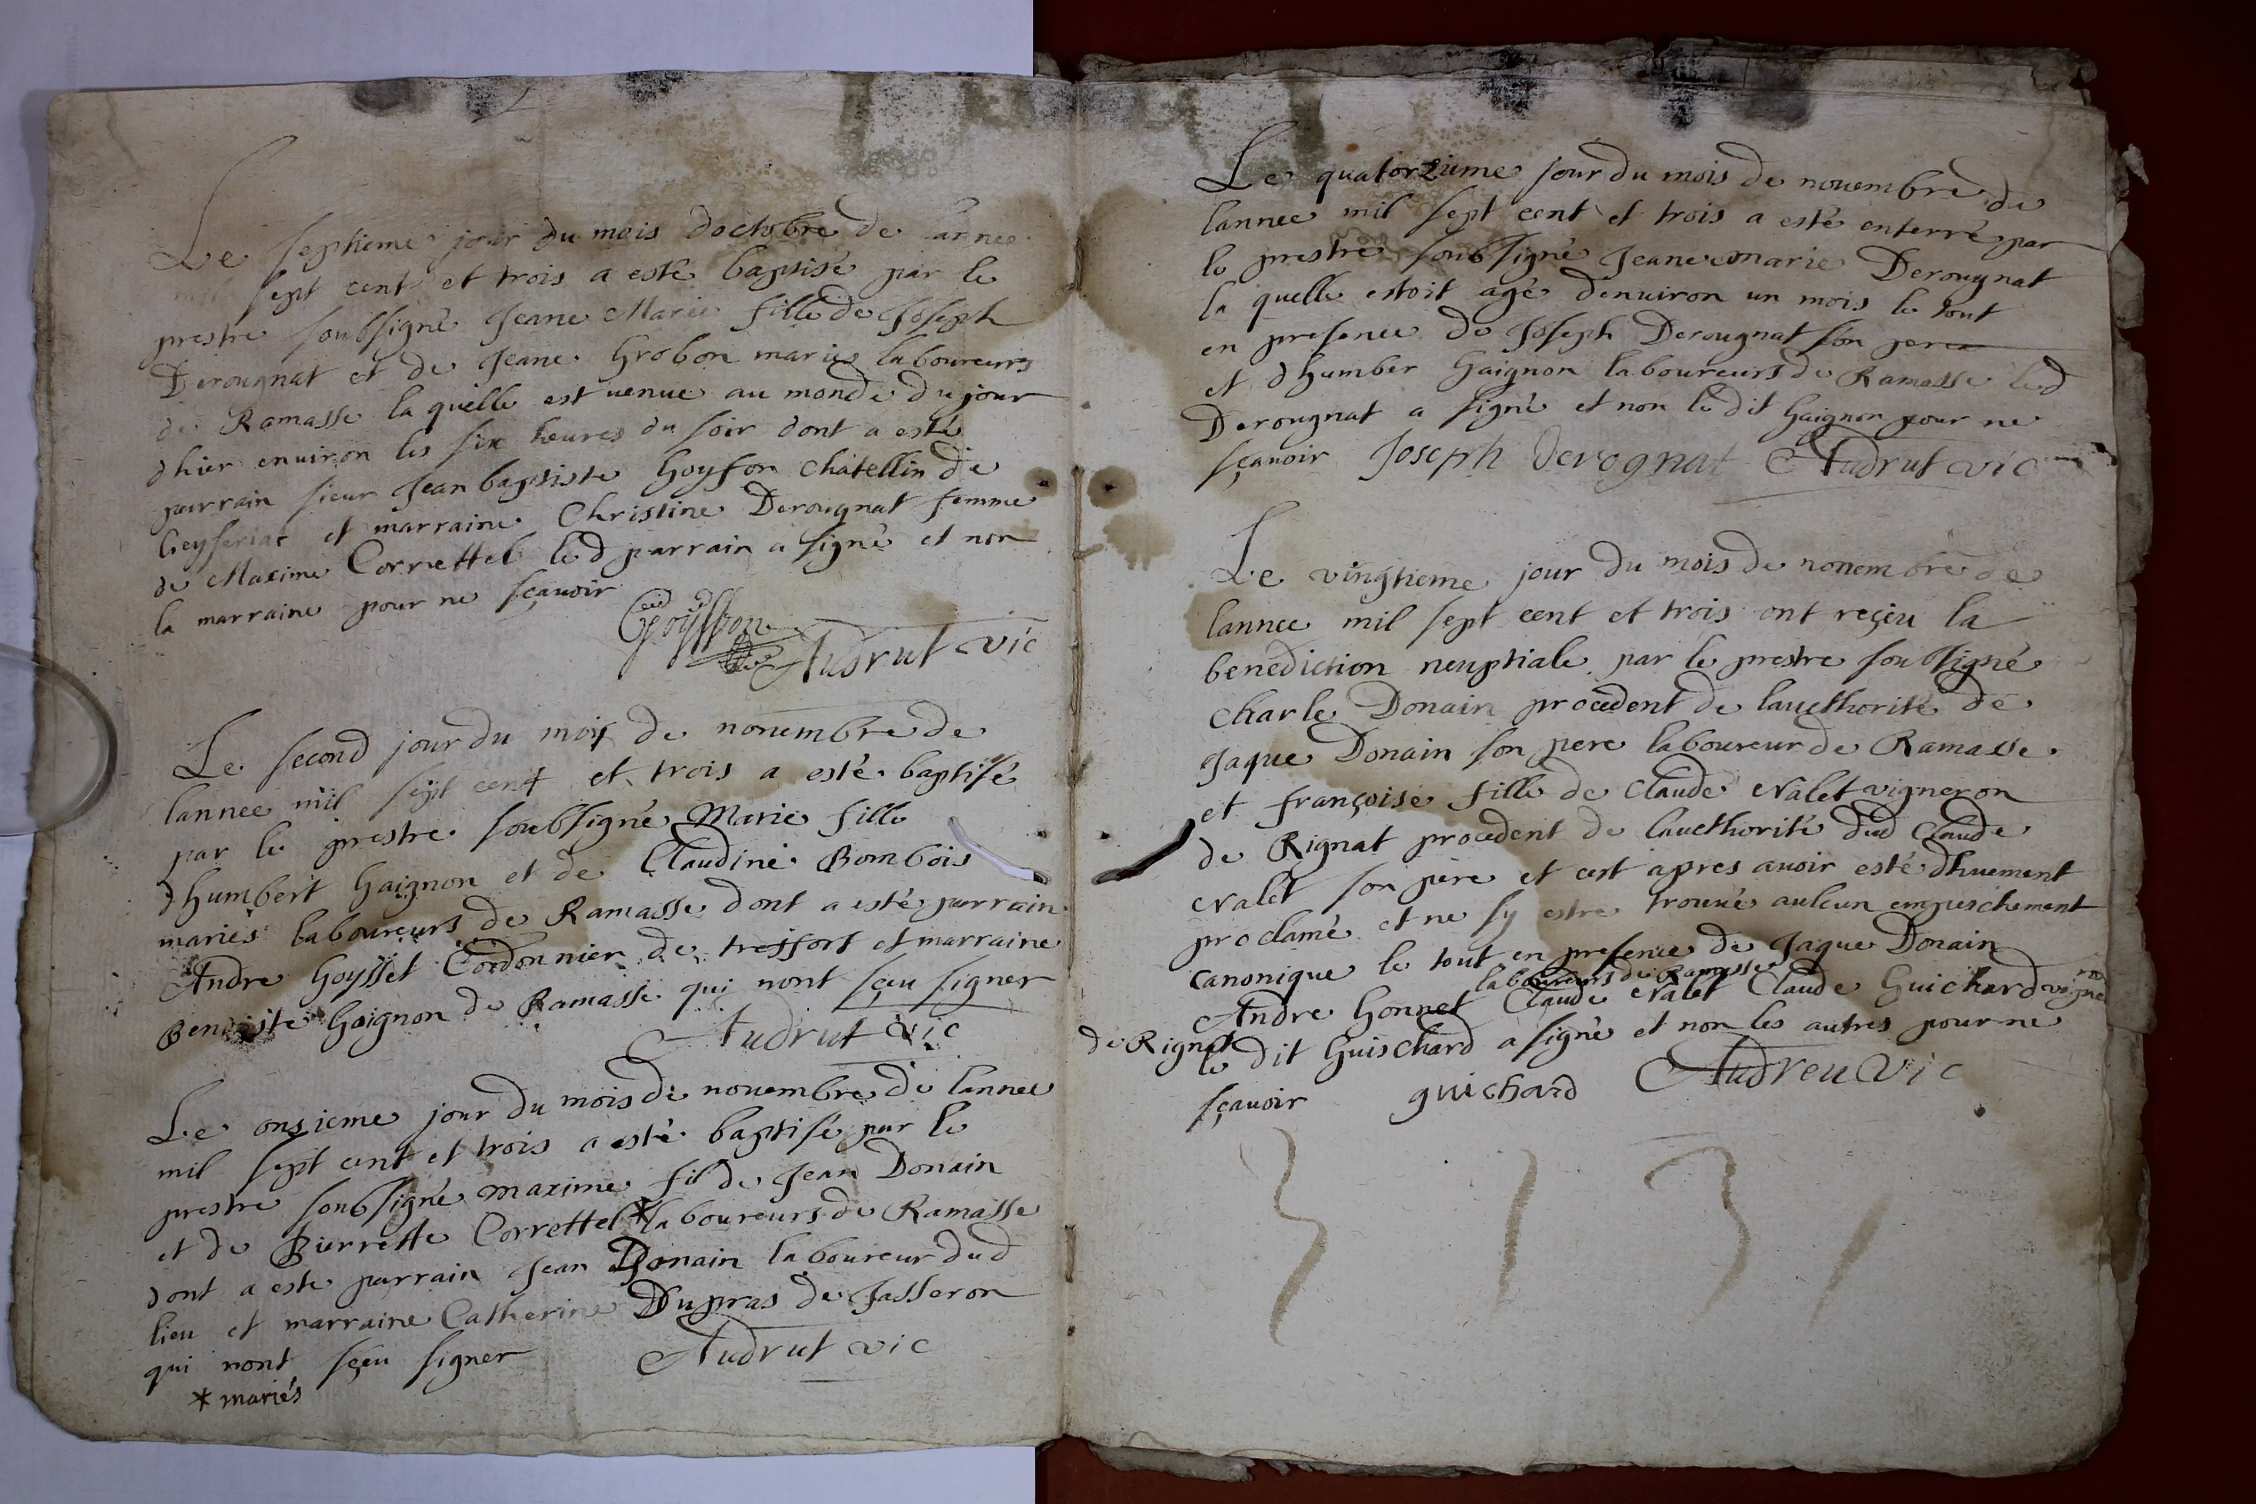 Le septieme jour du mois doctobre de lannee
mil sept cent et trois a esté baptisé par le
prestre soubsigné Jeane Marie fille de Joseph
Derougnat et de Jeane Grobon mariés laboureurs
de Ramasse la quelle est venue au monde du jour
dhier environ les six heures du soir dont a esté
parrain sieur Jean baptiste Goyson châtellin de
Ceyseriat et marraine Christine Derougnat femme
de Maxime Correttel led parrain a signé et non
la marraine pour ne sçavoir
Goysson
Audrut vic
Le second jour du mois de novembre de
lannee mil sept cent et trois a esté baptisé
par le prestre soubsigné Marie fille
dhumbert Gaignon et de Claudine Bombois
mariés laboureurs de Ramasse dont a esté parrain
Andre Goysset Cordonnier de treffort et marraine
Benoiste Gaignon de Ramasse qui nont sçeu signer
Audrut vic
Le onsieme jour du mois de novembre de lannee
mil sept cent et trois a esté baptisé par le
prestre soubsigné maxime fil de Jean Donain
et de Pierrette Correttel * laboureurs de Ramasse
dont a esté parrain Jean Donain laboureur dud
lieu et marraine Catherine Dupras de Jasseron
qui nont sçeu signer Audrut vic
* mariés
Le quatorzieme jour du mois de novembre de
lannee mil sept cent et trois a esté enterré par
le prestre soubsigné Jeane marie Derougnat
la quelle estoit agé denviron un mois le tout
en presence de Joseph Derougnat son pere
et dhumber Gaignon laboureurs de Ramasse led
Derougnat a signé et non le dit Gaignon pour ne
sçavoir Joseph Derognat Audrut vic
Le vingtieme jour du mois de novembre de
lannee mil sept cent et trois ont reçeu la
benediction neuptiale par le prestre soubsigné
Charle Donain procedent de laucthorité de
Jaque Donain son pere laboureur de Ramasse
et françoise fille de Claude Valet vigneron
de Rignat procedent de laucthorité dud Claude
Valet son père et cest apres avoir esté dhuement
proclamé et ne sy estre trouvé auleun empeschement
canonique le tout en presence de Jaque Donain
laboureurs de Ramasse
Andre Gonnet Claude Valet Claude Guichard vigner
de Rignat le dit Guischard a signé et non les autres pour ne
sçavoir guichard Audreu vic